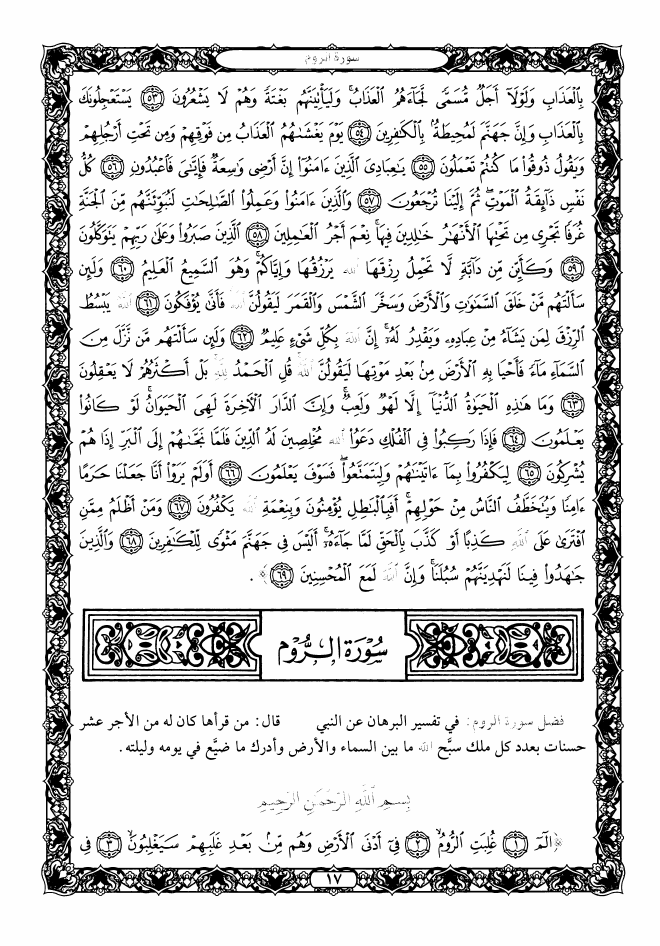 سورة الروم
بِالْعَذَابِ وَلَوْلَا أَجَلٌ مُّسَمًّى لَّجَاءَهُمُ الْعَذَابُ وَلَيَأْتِيَنَّهُم بَغْتَةً وَهُمْ لَا يَشْعُرُونَ ۝٥٣ يَسْتَعْجِلُونَكَ
بِالْعَذَابِ وَإِنَّ جَهَنَّمَ لَمُحِيطَةٌ بِالْكَافِرِينَ ۝٥٤ يَوْمَ يَغْشَاهُمُ الْعَذَابُ مِن فَوْقِهِمْ وَمِن تَحْتِ أَرْجُلِهِمْ
وَيَقُولُ ذُوقُوا مَا كُنتُمْ تَعْمَلُونَ ۝٥٥ يَاعِبَادِيَ الَّذِينَ ءَامَنُوا إِنَّ أَرْضِي وَاسِعَةٌ فَإِيَّايَ فَاعْبُدُونِ ۝٥٦ كُلُّ
نَفْسٍ ذَائِقَةُ الْمَوْتِ ثُمَّ إِلَيْنَا تُرْجَعُونَ ۝٥٧ وَالَّذِينَ ءَامَنُوا وَعَمِلُوا الصَّالِحَاتِ لَنُبَوِّئَنَّهُم مِّنَ الْجَنَّةِ
غُرَفًا تَجْرِي مِن تَحْتِهَا الْأَنْهَارُ خَالِدِينَ فِيهَا نِعْمَ أَجْرُ الْعَامِلِينَ ۝٥٨ الَّذِينَ صَبَرُوا وَعَلَى رَبِّهِمْ يَتَوَكَّلُونَ
۝٥٩ وَكَأَيِّن مِّن دَابَّةٍ لَّا تَحْمِلُ رِزْقَهَا اللَّهُ يَرْزُقُهَا وَإِيَّاكُمْ وَهُوَ السَّمِيعُ الْعَلِيمُ ۝٦٠ وَلَئِن
سَأَلْتَهُم مَّنْ خَلَقَ السَّمَاوَاتِ وَالْأَرْضَ وَسَخَّرَ الشَّمْسَ وَالْقَمَرَ لَيَقُولُنَّ اللَّهُ فَأَنَّى يُؤْفَكُونَ ۝٦١ اللَّهُ يَبْسُطُ
الرِّزْقَ لِمَن يَشَاءُ مِنْ عِبَادِهِ وَيَقْدِرُ لَهُ إِنَّ اللَّهَ بِكُلِّ شَيْءٍ عَلِيمٌ ۝٦٢ وَلَئِن سَأَلْتَهُم مَّن نَّزَّلَ مِنَ
السَّمَاءِ مَاءً فَأَحْيَا بِهِ الْأَرْضَ مِنْ بَعْدِ مَوْتِهَا لَيَقُولُنَّ اللَّهُ قُلِ الْحَمْدُ لِلَّهِ بَلْ أَكْثَرُهُمْ لَا يَعْقِلُونَ
۝٦٣ وَمَا هَذِهِ الْحَيَوةُ الدُّنْيَا إِلَّا لَهْوٌ وَلَعِبٌ وَإِنَّ الدَّارَ الْآخِرَةَ لَهِيَ الْحَيَوَانُ لَوْ كَانُوا
يَعْلَمُونَ ۝٦٤ فَإِذَا رَكِبُوا فِي الْفُلْكِ دَعَوُا اللَّهَ مُخْلِصِينَ لَهُ الدِّينَ فَلَمَّا نَجَّاهُمْ إِلَى الْبَرِّ إِذَا هُمْ
يُشْرِكُونَ ۝٦٥ لِيَكْفُرُوا بِمَا ءَاتَيْنَاهُمْ وَلِيَتَمَتَّعُوا فَسَوْفَ يَعْلَمُونَ ۝٦٦ أَوَلَمْ يَرَوْا أَنَّا جَعَلْنَا حَرَمًا
ءَامِنًا وَيُتَخَطَّفُ النَّاسُ مِنْ حَوْلِهِمْ أَفَبِالْبَاطِلِ يُؤْمِنُونَ وَبِنِعْمَةِ اللَّهِ يَكْفُرُونَ ۝٦٧ وَمَنْ أَظْلَمُ مِمَّنِ
افْتَرَى عَلَى اللَّهِ كَذِبًا أَوْ كَذَّبَ بِالْحَقِّ لَمَّا جَاءَهُ أَلَيْسَ فِي جَهَنَّمَ مَثْوًى لِّلْكَافِرِينَ ۝٦٨ وَالَّذِينَ
جَاهَدُوا فِينَا لَنَهْدِيَنَّهُمْ سُبُلَنَا وَإِنَّ اللَّهَ لَمَعَ الْمُحْسِنِينَ ۝٦٩ ﴾.
سُورَةُ الرُّومِ
فضل سورة الروم: في تفسير البرهان عن النبي قال: من قرأها كان له من الأجر عشر
حسنات بعدد كل ملك سبَّح الله ما بين السماء والأرض وأدرك ما ضيَّع في يومه وليلته.
بِسْمِ اللَّهِ الرَّحْمَنِ الرَّحِيمِ
﴿الٓمٓ ۝١ غُلِبَتِ الرُّومُ ۝٢ فِي أَدْنَى الْأَرْضِ وَهُم مِّنْ بَعْدِ غَلَبِهِمْ سَيَغْلِبُونَ ۝٣ فِي
١٧